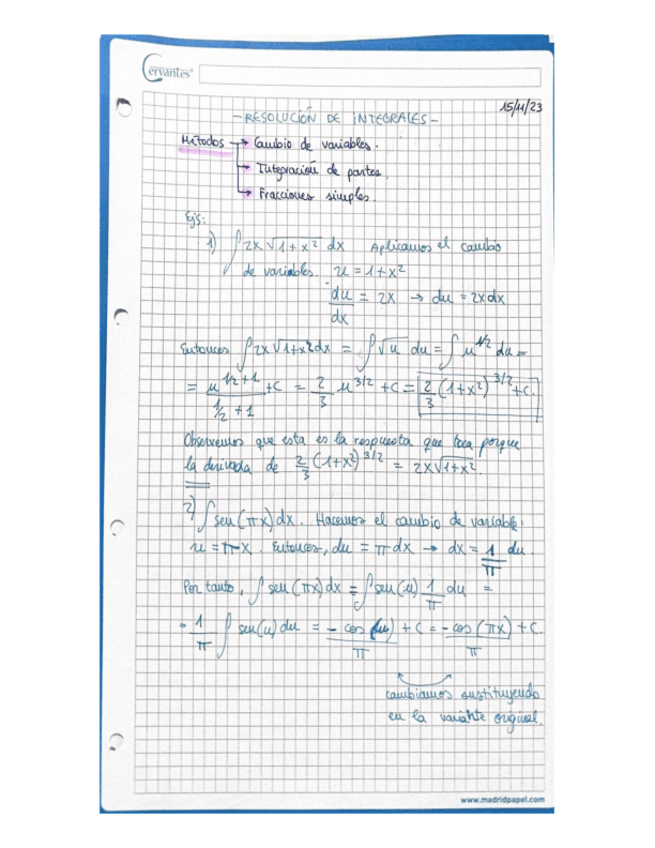 Cervantes®
15/11/23
- RESOLUCIÓN DE INTEGRALES -
Métodos → Cambio de variables.
→ Integración de partes.
→ Fracciones simples.
Ejs:
1) ∫2x√1+x² dx Aplicamos el cambio
de variables. u = 1+x²
du/dx = 2x → du = 2xdx
Entonces ∫2x√1+x² dx = ∫√u du = ∫u^1/2 du =
= u^(1/2+1)/(1/2+1) + C = 2/3 u^3/2 + C = 2/3 (1+x²)^3/2 + C.
Observemos que esta es la respuesta que toca porque
la derivada de 2/3 (1+x²)^3/2 = 2x√1+x².
2) ∫sen(πx)dx. Hacemos el cambio de variable:
u = πx. Entonces, du = π dx → dx = 1/π du.
Por tanto, ∫sen(πx)dx = ∫sen(u) 1/π du =
= 1/π ∫sen(u)du = -cos(u)/π + C = -cos(πx)/π + C.
cambiamos sustituyendo
en la variable original.
www.madridpapel.com